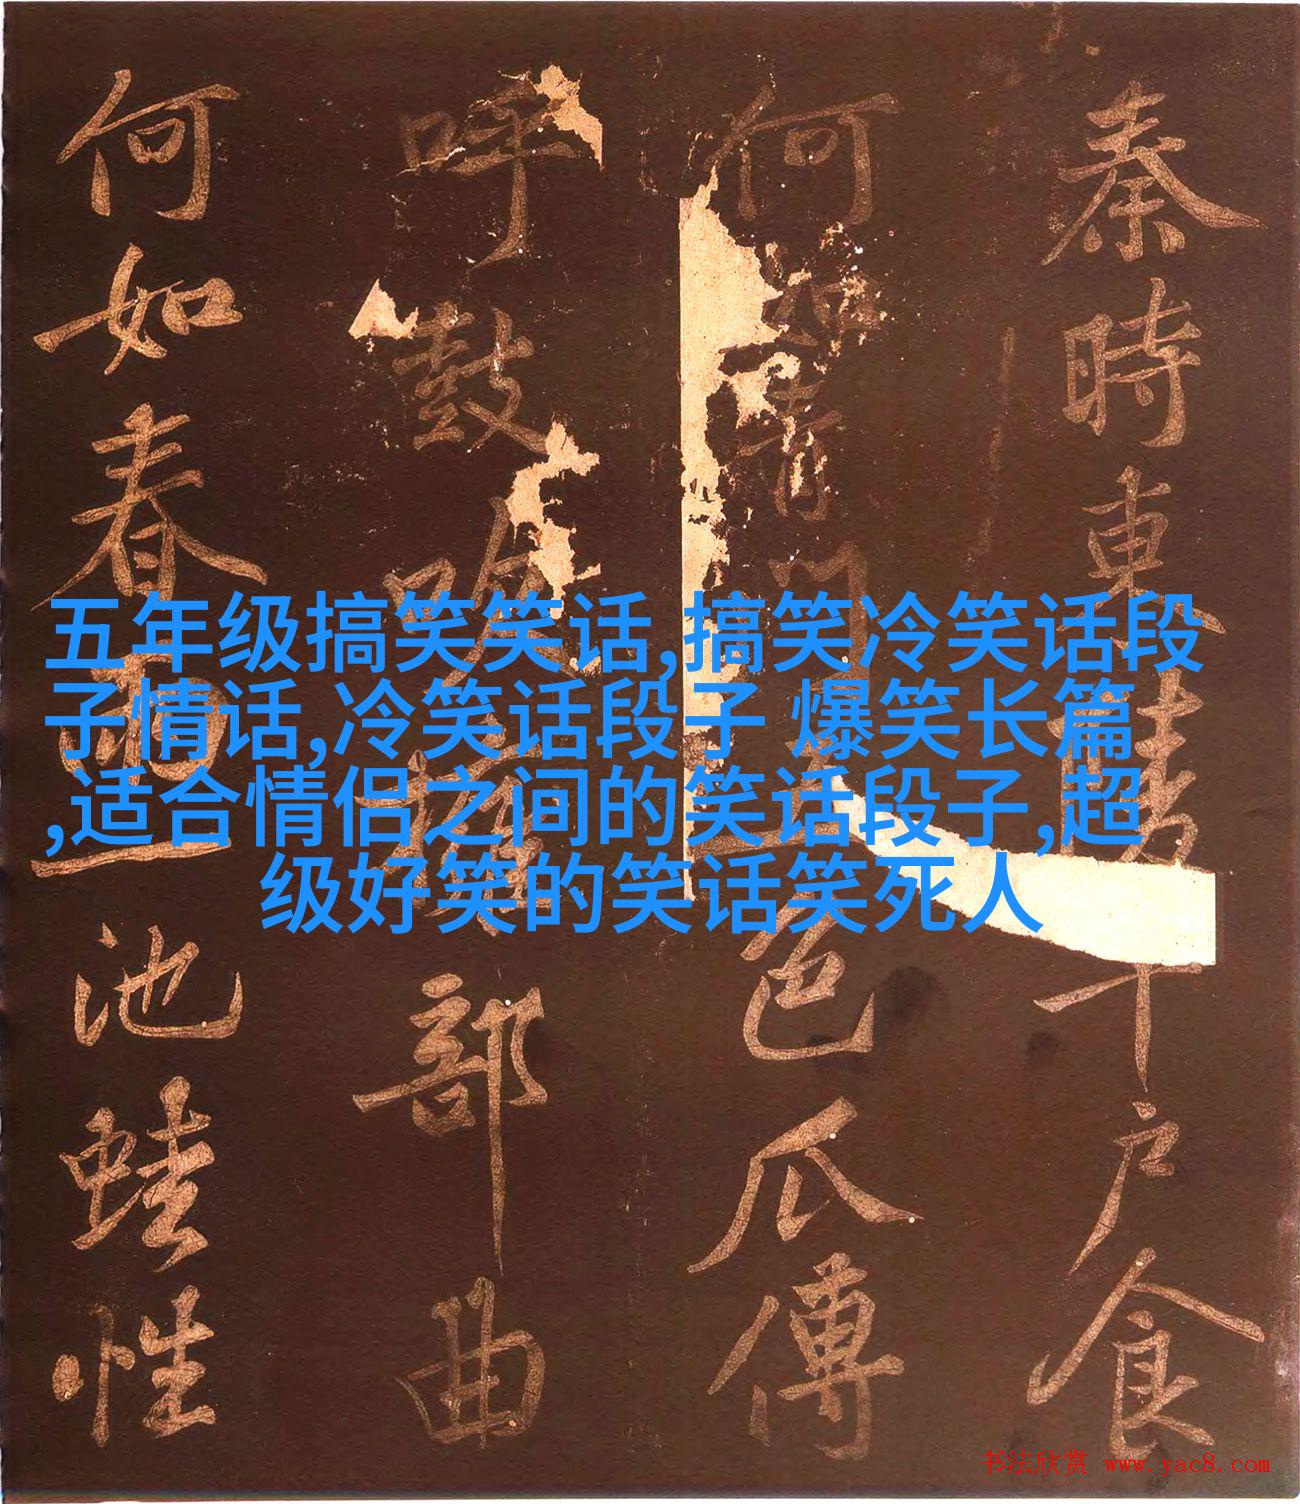 秦時東陵千户食
何如青門五色瓜傳
呼鼓吹擁部曲
何如春雨一池蛙性
五年级搞笑笑话,搞笑冷笑话段
子情话,冷笑话段子 爆笑长篇
,适合情侣之间的笑话段子,超
级好笑的笑话笑死人
书法欣赏 www.yac8.com